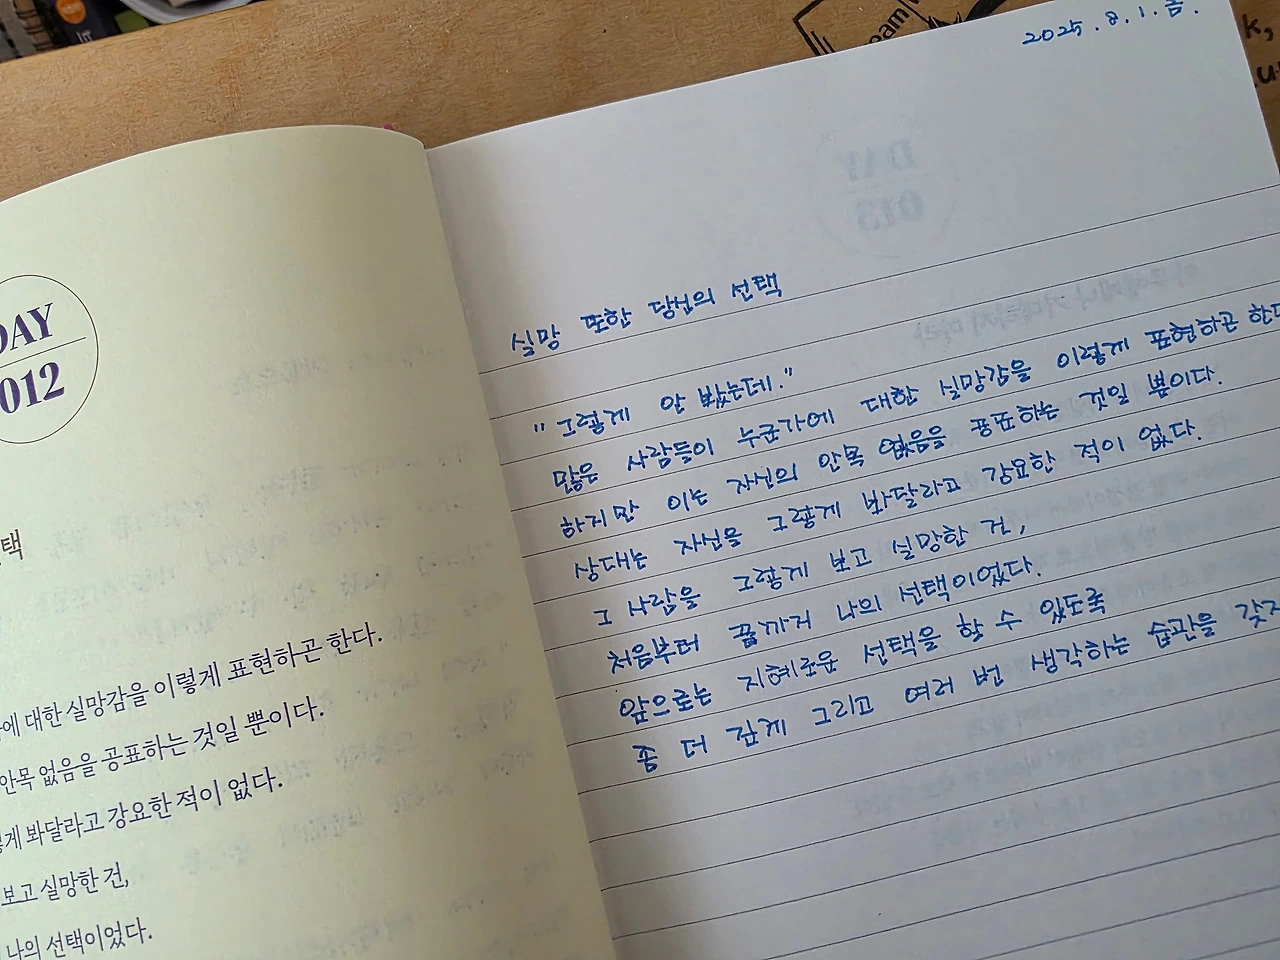 DAY
012
택
에 대한 실망감을 이렇게 표현하곤 한다.
안목 없음을 공표하는 것일 뿐이다.
게 봐달라고 강요한 적이 없다.
보고 실망한 건,
나의 선택이었다.
2025. 8. 1. 금.
실망 또한 당신의 선택
"그렇게 안 봤는데."
많은 사람들이 누군가에 대한 실망감을 이렇게 표현하곤 한다
하지만 이는 자신의 안목 없음을 공표하는 것일 뿐이다.
상대는 자신을 그렇게 봐달라고 강요한 적이 없다.
그 사람을 그렇게 보고 실망한 건,
처음부터 끝까지 나의 선택이었다.
앞으로는 지혜로운 선택을 할 수 있도록
좀 더 깊게 그리고 여러 번 생각하는 습관을 갖자
DAY
013
eam
k,